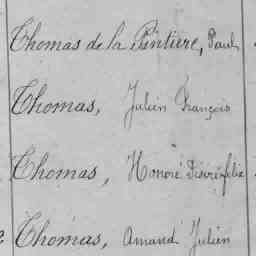 Thomas de la Pintière, Paul
Thomas, Julien François
Thomas, Honoré Désiré
Thomas, Amand Julien